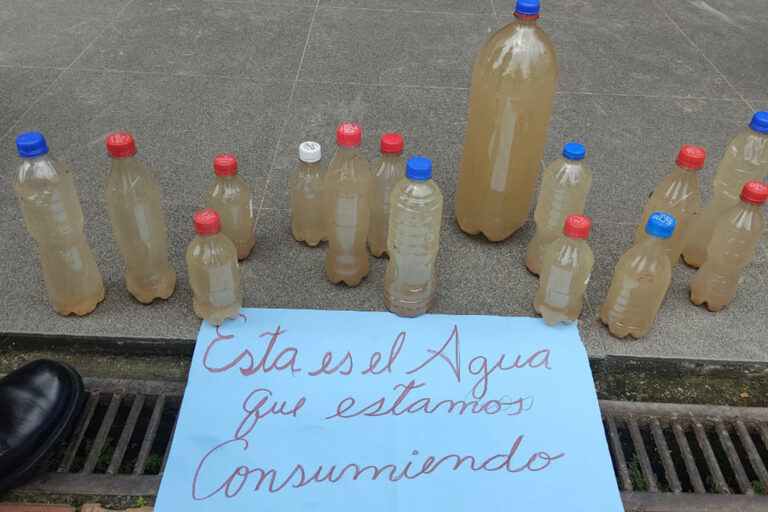 Esta es el Agua
que estamos
Consumiendo